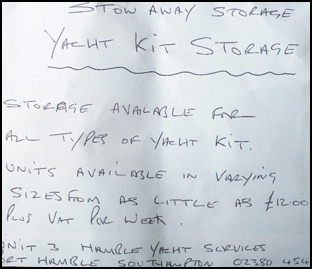 STOW AWAY STORAGE
YACHT KIT STORAGE
STORAGE AVAILABLE FOR
ALL TYPES OF YACHT KIT.
UNITS AVAILABLE IN VARYING
SIZES FROM AS LITTLE AS £12.00
PLUS VAT PER WEEK.
UNIT 3 HAMBLE YACHT SERVICES
PORT HAMBLE SOUTHAMPTON 02380 454